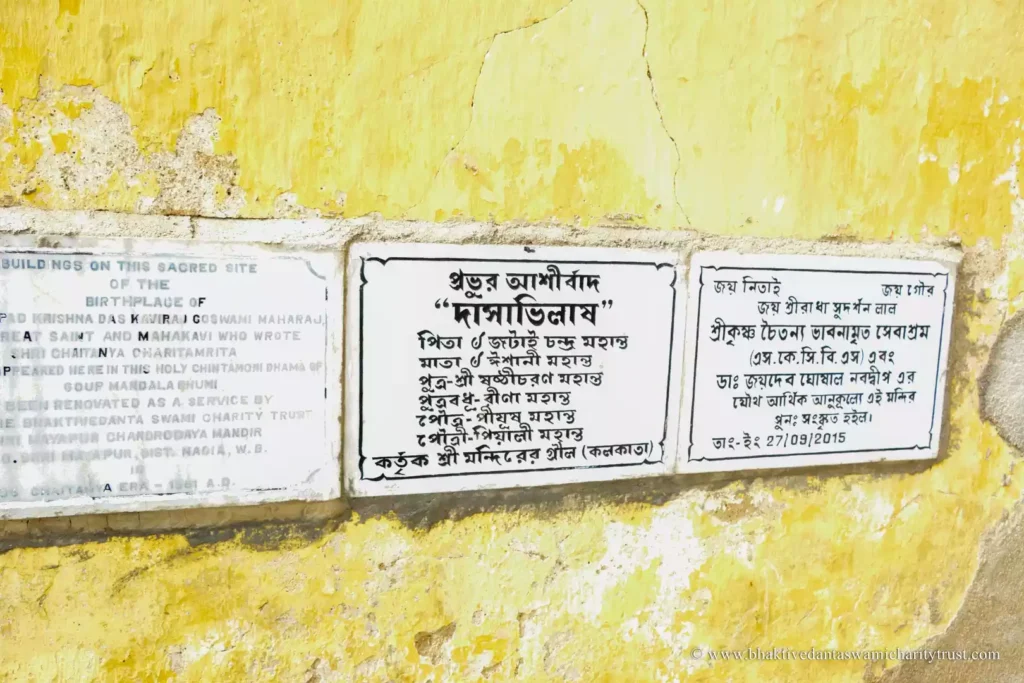 BUILDINGS ON THIS SACRED SITE
OF THE
BIRTHPLACE OF
PAD KRISHNA DAS KAVIRAJ GOSWAMI MAHARAJ,
REAT SAINT AND MAHAKAVI WHO WROTE
SHRI CHAITANYA CHARITAMRITA
PPEARED HERE IN THIS HOLY CHINTAMONI DHAMA OF
GOUP MANDALA BHUMI
BEEN RENOVATED AS A SERVICE BY
BHAKTIVEDANTA SWAMI CHARITY TRUST
MAYAPUR CHANDRODAYA MANDIR
MAYAPUR, DIST. NADIA, W.B.
IN
CHAITANYA ERA - 1981 A.D.
প্রভুর আশীর্বাদ
"দাসাভিলাষ"
পিতা ৺জটাই চন্দ্র মহান্ত
মাতা ৺ঈশানী মহান্ত
পুত্র-শ্রী ষষ্ঠীচরণ মহান্ত
পুত্রবধূ-রীণা মহান্ত
পৌত্র-পীযূষ মহান্ত
পৌত্রী-পিয়ালী মহান্ত
কর্তৃক শ্রী মন্দিরের গ্রীল (কলকাতা)
জয় নিতাই জয় গৌর
জয় শ্রীরাধা সুদর্শন লাল
শ্রীকৃষ্ণ চৈতন্য ভাবনামৃত সেবাশ্রম
(এস.কে.সি.বি.এস) এবং
ডাঃ জয়দেব ঘোষাল নবদ্বীপ এর
যৌথ আর্থিক আনুকুল্যে এই মন্দির
পুনঃ সংস্কৃত হইল।
তাং-ইং 27/09/2015
© www.bhaktivedantaswamicharitytrust.com